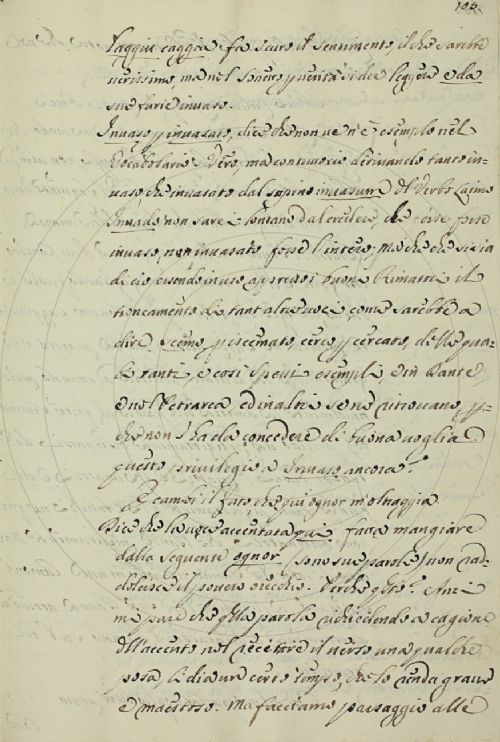 caggia fa scuro il sentimento, il che sarebbe
verissimo, ma nel sonetto si dee leggere e da
sue furie invaso.
Invaso p invasato, dice che non ve n'è esempio nel
Vocabolario. Vero, ma contuttociò derivando tanto in-
vaso che invasato dal supino invasum del Verbo Latino
Invado non sarei lontano dal credere, che
invaso, non invasato fosse l'intero, ma che che si sia
di ciò, essendo in uso appresso i buoni Rimatori il
troncamento di tant'altre voci come sarebbe a
dire. Scemo, p iscemato, cerco p cercato, delle qua-
li tanti, e così spessi esempli, e in Dante
e nel Petrarca ed in altri se ne ritrovano, p-
chè non s'ha da concedere di buona voglia
questo privilegio a Invaso ancora?
E cambi il Fato, che qui ognor m'oltraggia
Dice che la voce accentata qui fatta mangiare
dalla seguente ognor (sono sue parole) non rad-
dolcisce il povero orecchio. Perchè qsto? Anzi
mi pare che qlla parola richiedendo a cagione
dell'accento nel recitare il verso una qualche
posa, li dia un certo tempo, che lo renda grave
e maestoso. Ma facciamo passaggio alle